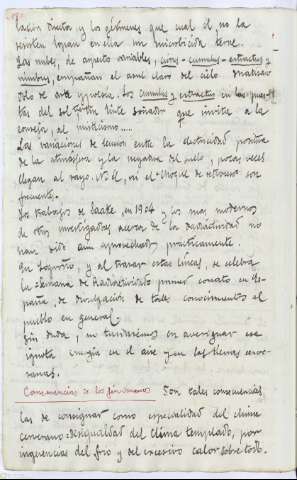 lación directa y los gérmenes que cual él no la
resisten logran en ella un microbicida tenue.
Las nubes, de aspecto variables, cirros - cumulus - extractus y
nimbus, empañan el azul claro del cielo
dolo de arte y poesía. Los cumulus y extractus en las pues-
tas del sol tinte soñador que invita a la
al misticismo.....
Las variaciones de tension entre la electricidad positiva
de la atmósfera y la negativa del suelo, pocas veces
llegan al rayo. Ni él, ni el choque de retroceso son
frecuentes.
Los trabajos de Saake, en 1904 y los mas modernos
de otros investigadores acerca de la radiactividad no
han sido aún aprovechados prácticamente.
En Logroño, y al trazar estas líneas, se celebra
la Semana de Radiactividad primer conato en Es-
paña, de divulgación de tales conocimientos al
pueblo en general.
Sin duda, no tardaremos en averiguar esa
ignota energía en el aire y en las tierras cerve-
ranas.
Consecuencias de los fenómenos Son tales consecuencias
las de consignar como especialidad del clima
cerverano: Desigualdad del clima templado, por
ingerencias del frío y del excesivo calor sobre todo.